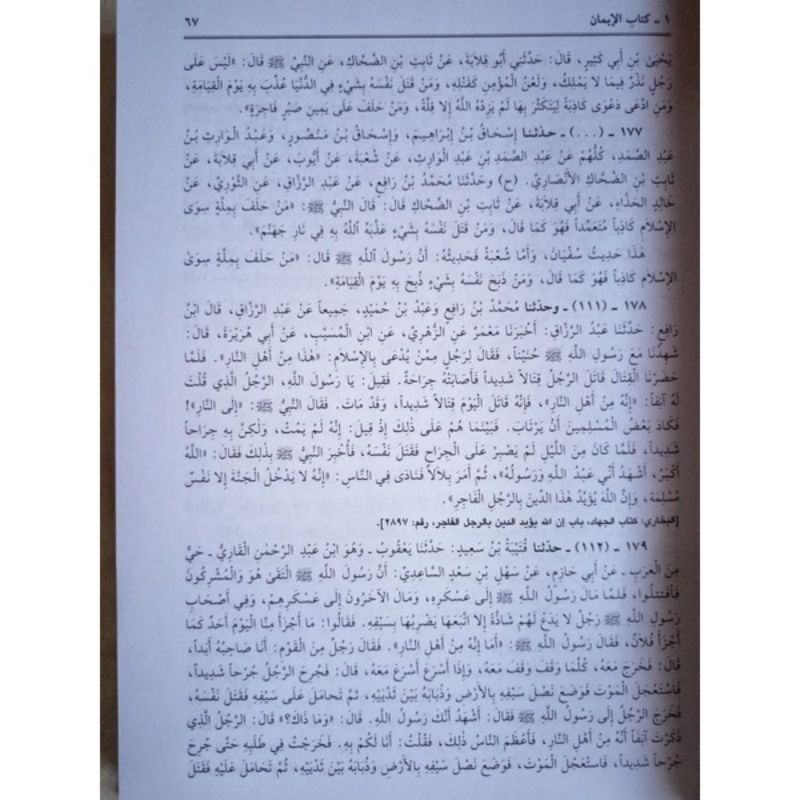 ١ ـ كتاب الإيمان ٦٧
يَحْيَىٰ بْنِ أَبِي كَثِيرٍ، قَالَ: حَدَّثَنِي أَبُو قِلاَبَةَ، عَنْ ثَابِتِ بْنِ الضَّحَّاكِ، عَنِ النَّبِيِّ ﷺ قَالَ: «لَيْسَ عَلَى
رَجُلٍ نَذْرٌ فِيمَا لاَ يَمْلِكُ، وَلَعْنُ الْمُؤْمِنِ كَقَتْلِهِ، وَمَنْ قَتَلَ نَفْسَهُ بِشَيْءٍ فِي الدُّنْيَا عُذِّبَ بِهِ يَوْمَ الْقِيَامَةِ،
وَمَنِ ادَّعَى دَعْوَى كَاذِبَةً لِيَتَكَثَّرَ بِهَا لَمْ يَزِدْهُ اللَّهُ إِلا قِلَّةً، وَمَنْ حَلَفَ عَلَى يَمِينِ صَبْرٍ فَاجِرَةٍ».
١٧٧ ـ (...) ـ حدّثنا إِسْحَاقُ بْنُ إِبْرَاهِيمَ، وَإِسْحَاقُ بْنُ مَنْصُورٍ، وَعَبْدُ الْوَارِثِ بْنُ
عَبْدِ الصَّمَدِ، كُلُّهُمْ عَنْ عَبْدِ الصَّمَدِ بْنِ عَبْدِ الْوَارِثِ، عَنْ شُعْبَةَ، عَنْ أَيُّوبَ، عَنْ أَبِي قِلاَبَةَ، عَنْ
ثَابِتِ بْنِ الضَّحَّاكِ الأَنْصَارِيِّ. (ح) وحَدَّثَنَا مُحَمَّدُ بْنُ رَافِعٍ، عَنْ عَبْدِ الرَّزَّاقِ، عَنِ الثَّوْرِيِّ، عَنْ
خَالِدٍ الْحَذَّاءِ، عَنْ أَبِي قِلاَبَةَ، عَنْ ثَابِتِ بْنِ الضَّحَّاكِ قَالَ: قَالَ النَّبِيُّ ﷺ: «مَنْ حَلَفَ بِمِلَّةٍ سِوَى
الإِسْلاَمِ كَاذِباً مُتَعَمِّداً فَهُوَ كَمَا قَالَ، وَمَنْ قَتَلَ نَفْسَهُ بِشَيْءٍ عَذَّبَهُ اللَّهُ بِهِ فِي نَارِ جَهَنَّمَ».
هٰذَا حَدِيثُ سُفْيَانَ، وَأَمَّا شُعْبَةُ فَحَدِيثُهُ: أَنَّ رَسُولَ اللَّهِ ﷺ قَالَ: «مَنْ حَلَفَ بِمِلَّةٍ سِوَىٰ
الإِسْلاَمِ كَاذِباً فَهُوَ كَمَا قَالَ، وَمَنْ ذَبَحَ نَفْسَهُ بِشَيْءٍ ذُبِحَ بِهِ يَوْمَ الْقِيَامَةِ».
١٧٨ ـ (١١١) ـ وحدّثنا مُحَمَّدُ بْنُ رَافِعٍ وَعَبْدُ بْنُ حُمَيْدٍ، جَمِيعاً عَنْ عَبْدِ الرَّزَّاقِ، قَالَ ابْنُ
رَافِعٍ: حَدَّثَنَا عَبْدُ الرَّزَّاقِ: أَخْبَرَنَا مَعْمَرٌ عَنِ الزُّهْرِيِّ، عَنِ ابْنِ الْمُسَيَّبِ، عَنْ أَبِي هُرَيْرَةَ، قَالَ:
شَهِدْنَا مَعَ رَسُولِ اللَّهِ ﷺ حُنَيْناً، فَقَالَ لِرَجُلٍ مِمَّنْ يُدْعَى بِالإِسْلاَمِ: «هٰذَا مِنْ أَهْلِ النَّارِ». فَلَمَّا
حَضَرْنَا الْقِتَالَ قَاتَلَ الرَّجُلُ قِتَالاً شَدِيداً فَأَصَابَتْهُ جِرَاحَةٌ. فَقِيلَ: يَا رَسُولَ اللَّهِ، الرَّجُلُ الَّذِي قُلْتَ
لَهُ آنِفاً: «إِنَّهُ مِنْ أَهْلِ النَّارِ»، فَإِنَّهُ قَاتَلَ الْيَوْمَ قِتَالاً شَدِيداً، وَقَدْ مَاتَ. فَقَالَ النَّبِيُّ ﷺ: «إِلَى النَّارِ»!
فَكَادَ بَعْضُ الْمُسْلِمِينَ أَنْ يَرْتَابَ. فَبَيْنَمَا هُمْ عَلَى ذٰلِكَ إِذْ قِيلَ: إِنَّهُ لَمْ يَمُتْ، وَلٰكِنَّ بِهِ جِرَاحاً
شَدِيداً، فَلَمَّا كَانَ مِنَ اللَّيْلِ لَمْ يَصْبِرْ عَلَى الْجِرَاحِ فَقَتَلَ نَفْسَهُ، فَأُخْبِرَ النَّبِيُّ ﷺ بِذٰلِكَ فَقَالَ: «اللَّهُ
أَكْبَرُ، أَشْهَدُ أَنِّي عَبْدُ اللَّهِ وَرَسُولُهُ»، ثُمَّ أَمَرَ بِلاَلاً فَنَادَى فِي النَّاسِ: «إِنَّهُ لاَ يَدْخُلُ الْجَنَّةَ إِلا نَفْسٌ
مُسْلِمَة، وَإِنَّ اللَّهَ يُؤَيِّدُ هٰذَا الدِّينَ بِالرَّجُلِ الْفَاجِرِ».
[البخاري: كتاب الجهاد، باب إن الله يؤيد الدين بالرجل الفاجر، رقم: ٢٨٩٧].
١٧٩ ـ (١١٢) ـ حدّثنا قُتَيْبَةُ بْنُ سَعِيدٍ: حَدَّثَنَا يَعْقُوبُ ـ وَهُوَ ابْنُ عَبْدِ الرَّحْمٰنِ الْقَارِيُّ، حَيٌّ
مِنَ الْعَرَبِ ـ عَنْ أَبِي حَازِمٍ، عَنْ سَهْلِ بْنِ سَعْدٍ السَّاعِدِيِّ: أَنَّ رَسُولَ اللَّهِ ﷺ الْتَقَىٰ هُوَ وَالْمُشْرِكُونَ
فَاقْتَتَلُوا، فَلَمَّا مَالَ رَسُولُ اللَّهِ ﷺ إِلَى عَسْكَرِهِ، وَمَالَ الآخَرُونَ إِلَى عَسْكَرِهِمْ، وَفِي أَصْحَابِ
رَسُولِ اللَّهِ ﷺ رَجُلٌ لا يَدَعُ لَهُمْ شَاذَّةً إِلا اتَّبَعَهَا يَضْرِبُهَا بِسَيْفِهِ. فَقَالُوا: مَا أَجْزَأَ مِنَّا الْيَوْمَ أَحَدٌ كَمَا
أَجْزَأَ فُلاَنٌ، فَقَالَ رَسُولُ اللَّهِ ﷺ: «أَمَا إِنَّهُ مِنْ أَهْلِ النَّارِ». فَقَالَ رَجُلٌ مِنَ الْقَوْمِ: أَنَا صَاحِبُهُ أَبَداً،
قَالَ: فَخَرَجَ مَعَهُ، كُلَّمَا وَقَفَ وَقَفَ مَعَهُ، وَإِذَا أَسْرَعَ أَسْرَعَ مَعَهُ، قَالَ: فَجُرِحَ الرَّجُلُ جُرْحاً شَدِيداً،
فَاسْتَعْجَلَ الْمَوْتَ فَوَضَعَ نَصْلَ سَيْفِهِ بِالأَرْضِ وَذُبَابَهُ بَيْنَ ثَدْيَيْهِ، ثُمَّ تَحَامَلَ عَلَى سَيْفِهِ فَقَتَلَ نَفْسَهُ،
فَخَرَجَ الرَّجُلُ إِلَى رَسُولِ اللَّهِ ﷺ فَقَالَ: أَشْهَدُ أَنَّكَ رَسُولُ اللَّهِ. قَالَ: «وَمَا ذَاكَ؟» قَالَ: الرَّجُلُ الَّذِي
ذَكَرْتَ آنِفاً أَنَّهُ مِنْ أَهْلِ النَّارِ، فَأَعْظَمَ النَّاسُ ذٰلِكَ، فَقُلْتُ: أَنَا لَكُمْ بِهِ. فَخَرَجْتُ فِي طَلَبِهِ حَتَّى جُرِحَ
جُرْحاً شَدِيداً، فَاسْتَعْجَلَ الْمَوْتَ، فَوَضَعَ نَصْلَ سَيْفِهِ بِالأَرْضِ وَذُبَابَهُ بَيْنَ ثَدْيَيْهِ، ثُمَّ تَحَامَلَ عَلَيْهِ فَقَتَلَ